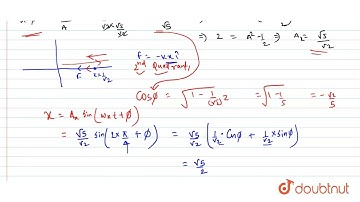 A √5 ⇒ 2 = A² - 1/2 ⇒ A₂ = √5/√2
F = -kx î
2nd Quadrant,
F
Cosφ = √(1 - 1/(√5)2) = √(1 - 1/5) = -√2/5
x = Aₓ sin(wxt + φ)
= √5/√2 sin(2 × π/4 + φ) = √5/√2 (1/√2 · Cosφ + 1/√2 × sinφ)
= √5/2
doubtnut